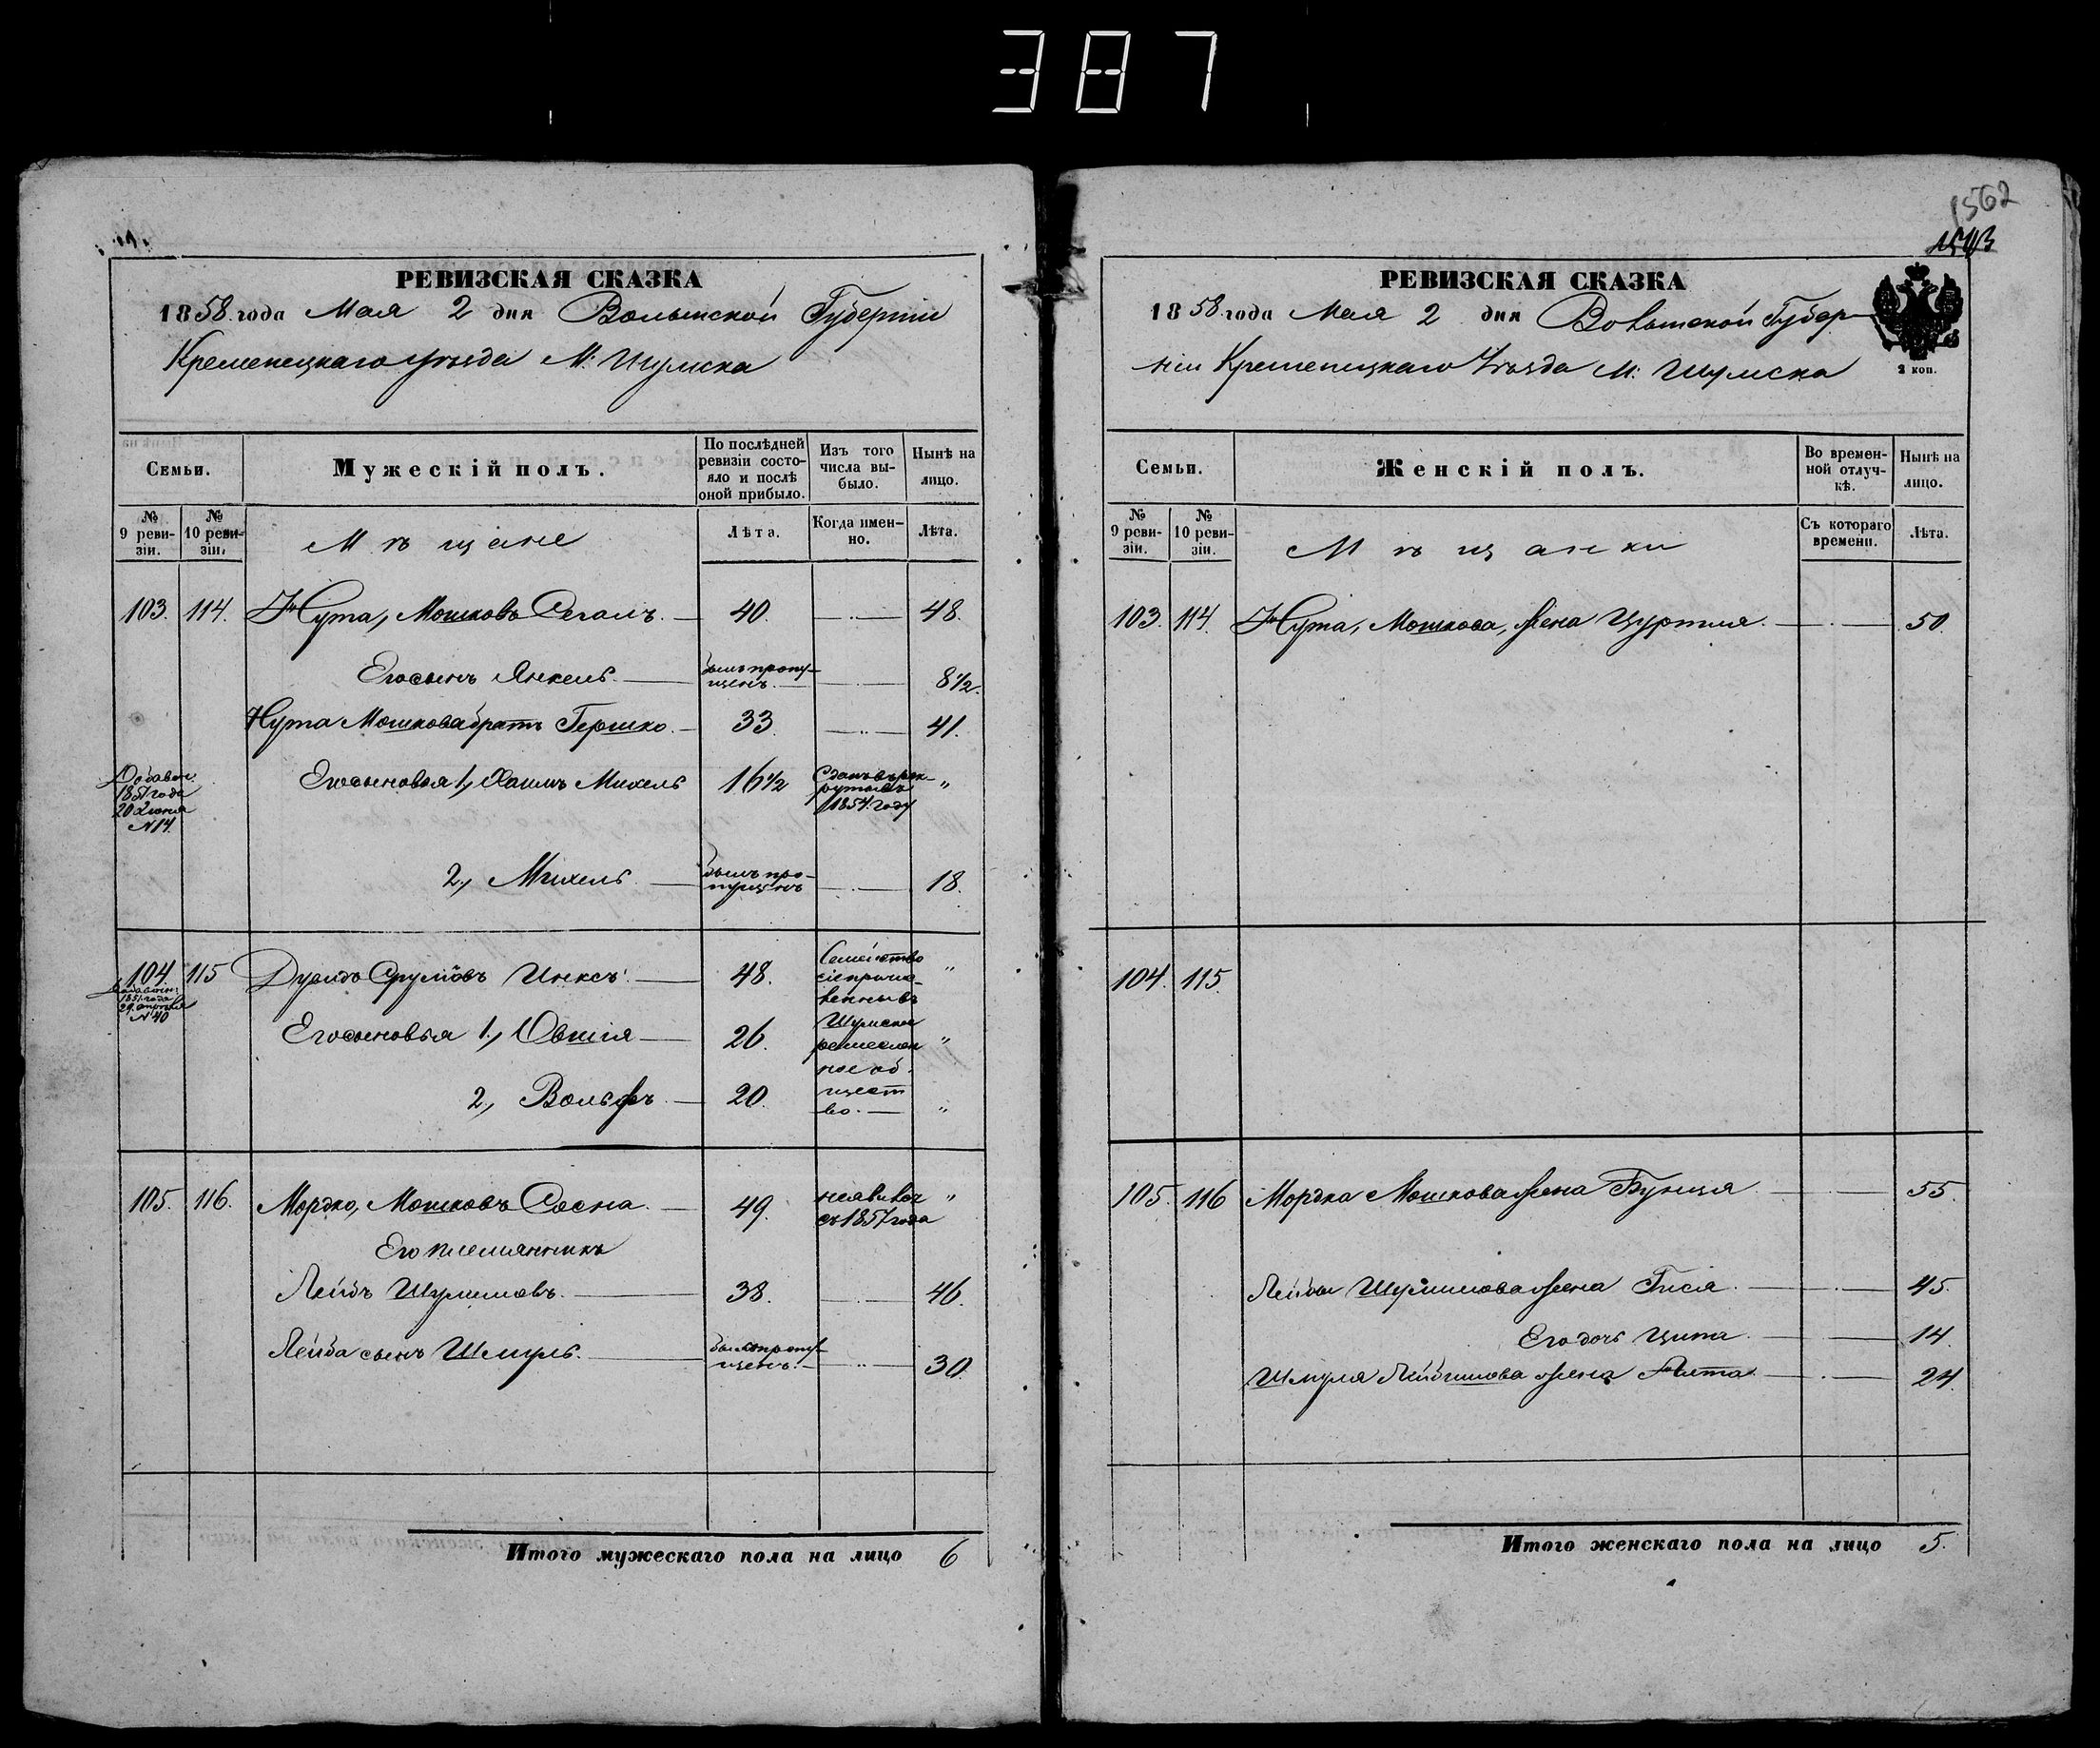 387
РЕВИЗСКАЯ СКАЗКА
1858 года Мая 2 дня Волынской Губерніи
Кременецкаго уѣзда М: Шумска
Семьи.
Мужескій полъ.
По послѣдней ревизіи состояло и послѣ оной прибыло.
Изъ того числа выбыло.
Нынѣ на лицо.
№ 9 ревизіи.
№ 10 ревизіи.
Мѣщане
Лѣта.
Когда именно.
Лѣта.
103. 114. Нута, Мошковъ Сегалъ. 40. 48.
Его сынъ Янкель. былъ пропущенъ. 8½.
Нута Мошкова братъ Гершко. 33. 41.
Добавоч. 1851 года 20 Іюня №14.
Его сыновья 1, Хаимъ Михель 16½ Сданъ въ рекруты въ 1854. году "
2., Михель. былъ пропущенъ 18.
104. 115 Дувидъ Срулiовъ 48. "
1851 года №40
Семейство сіе причисленны въ Шумское ремесленное общество.
Его сыновья 1., Овшія 26. "
2., Вольфъ. 20. "
105. 116. Мордко, Мошковъ Сосна. 49. съ 1857 года "
Его племянникъ
Лейбъ Шулимовъ. 38. 46.
Лейба сынъ Шмуль. былъ пропущенъ. 30.
Итого мужескаго пола на лицо 6
1562
РЕВИЗСКАЯ СКАЗКА
1858 года Мая 2 дня Волынской Губер-
ніи Кременецкаго Уѣзда М: Шумска
2 коп.
Семьи.
Женскій полъ.
Во временной отлучкѣ.
Нынѣ на лицо.
№ 9 ревизіи.
№ 10 ревизіи.
Мѣщанки
Съ котораго времени.
Лѣта.
103. 114. Нута, Мошкова, жена Цуртля. 50.
104. 115.
105. 116 Мордка Мошкова жена Бунця 55.
Лейбы Шулимова жена Гися. 45.
Его дочь Ципа. 14.
Шмуля Лейбишова жена 24.
Итого женскаго пола на лицо 5.